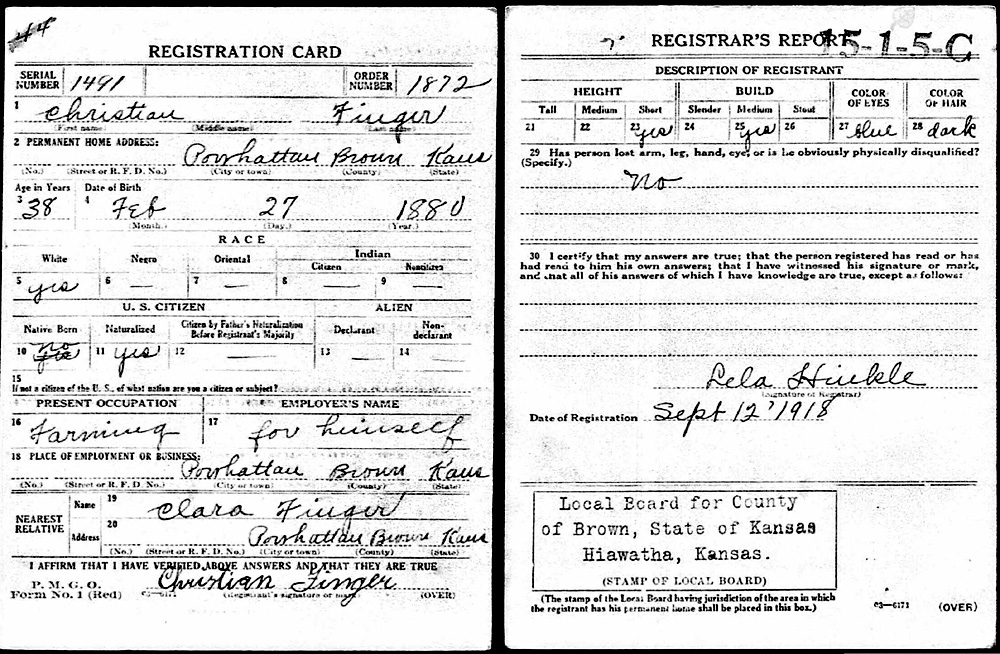 44
REGISTRATION CARD
SERIAL NUMBER 1491 ORDER NUMBER 1872
1 Christian Finger
(First name) (Middle name) (Last name)
2 PERMANENT HOME ADDRESS:
Powhattan Brown Kans
(No.) (Street or R. F. D. No.) (City or town) (County) (State)
Age in Years Date of Birth
3 38 4 Feb 27 1880
(Month.) (Day.) (Year.)
RACE
White Negro Oriental Indian
Citizen Noncitizen
5 yes 6 — 7 — 8 — 9 —
U. S. CITIZEN ALIEN
Native Born Naturalized Citizen by Father's Naturalization Before Registrant's Majority Declarant Non-declarant
no
10 yes 11 yes 12 — 13 — 14 —
15
If not a citizen of the U. S., of what nation are you a citizen or subject?
PRESENT OCCUPATION EMPLOYER'S NAME
16 Farming 17 for himself
18 PLACE OF EMPLOYMENT OR BUSINESS:
Powhattan Brown Kans
(No.) (Street or R. F. D. No.) (City or town) (County) (State)
NEAREST RELATIVE
Name 19 Clara Finger
Address 20 Powhattan Brown Kans
(No.) (Street or R. F. D. No.) (City or town) (County) (State)
I AFFIRM THAT I HAVE VERIFIED ABOVE ANSWERS AND THAT THEY ARE TRUE
P. M. G. O.
Form No. 1 (Red) Christian Finger
(Registrant's signature or mark) (OVER)
REGISTRAR'S REPORT 15-1-5-C
DESCRIPTION OF REGISTRANT
HEIGHT BUILD COLOR OF EYES COLOR OF HAIR
Tall Medium Short Slender Medium Stout
21 22 23 yes 24 25 yes 26 27 blue 28 dark
29 Has person lost arm, leg, hand, eye, or is he obviously physically disqualified?
(Specify.)
No
30 I certify that my answers are true; that the person registered has read or has
had read to him his own answers; that I have witnessed his signature or mark,
and that all of his answers of which I have knowledge are true, except as follows:
Lela Hinkle
(Signature of Registrar)
Date of Registration Sept 12 1918
Local Board for County
of Brown, State of Kansas
Hiawatha, Kansas.
(STAMP OF LOCAL BOARD)
(The stamp of the Local Board having jurisdiction of the area in which
the registrant has his permanent home shall be placed in this box.)
03—6171 (OVER)